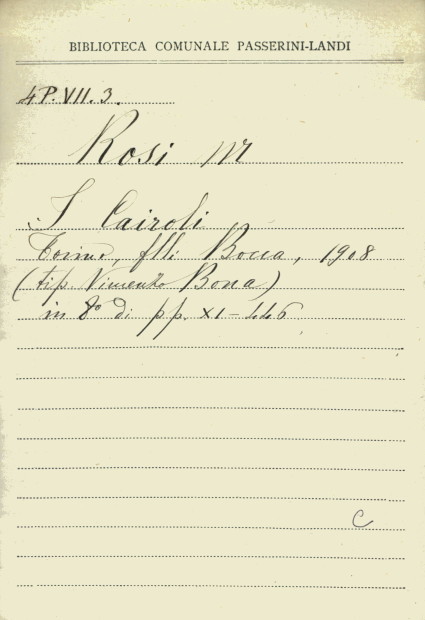 BIBLIOTECA COMUNALE PASSERINI-LANDI
4P.VII.3.
Rosi M
I Cairoli
Torino, flli Bocca, 1908
(tip. Vincenzo Bona)
in 8° di pp. XI-446
C